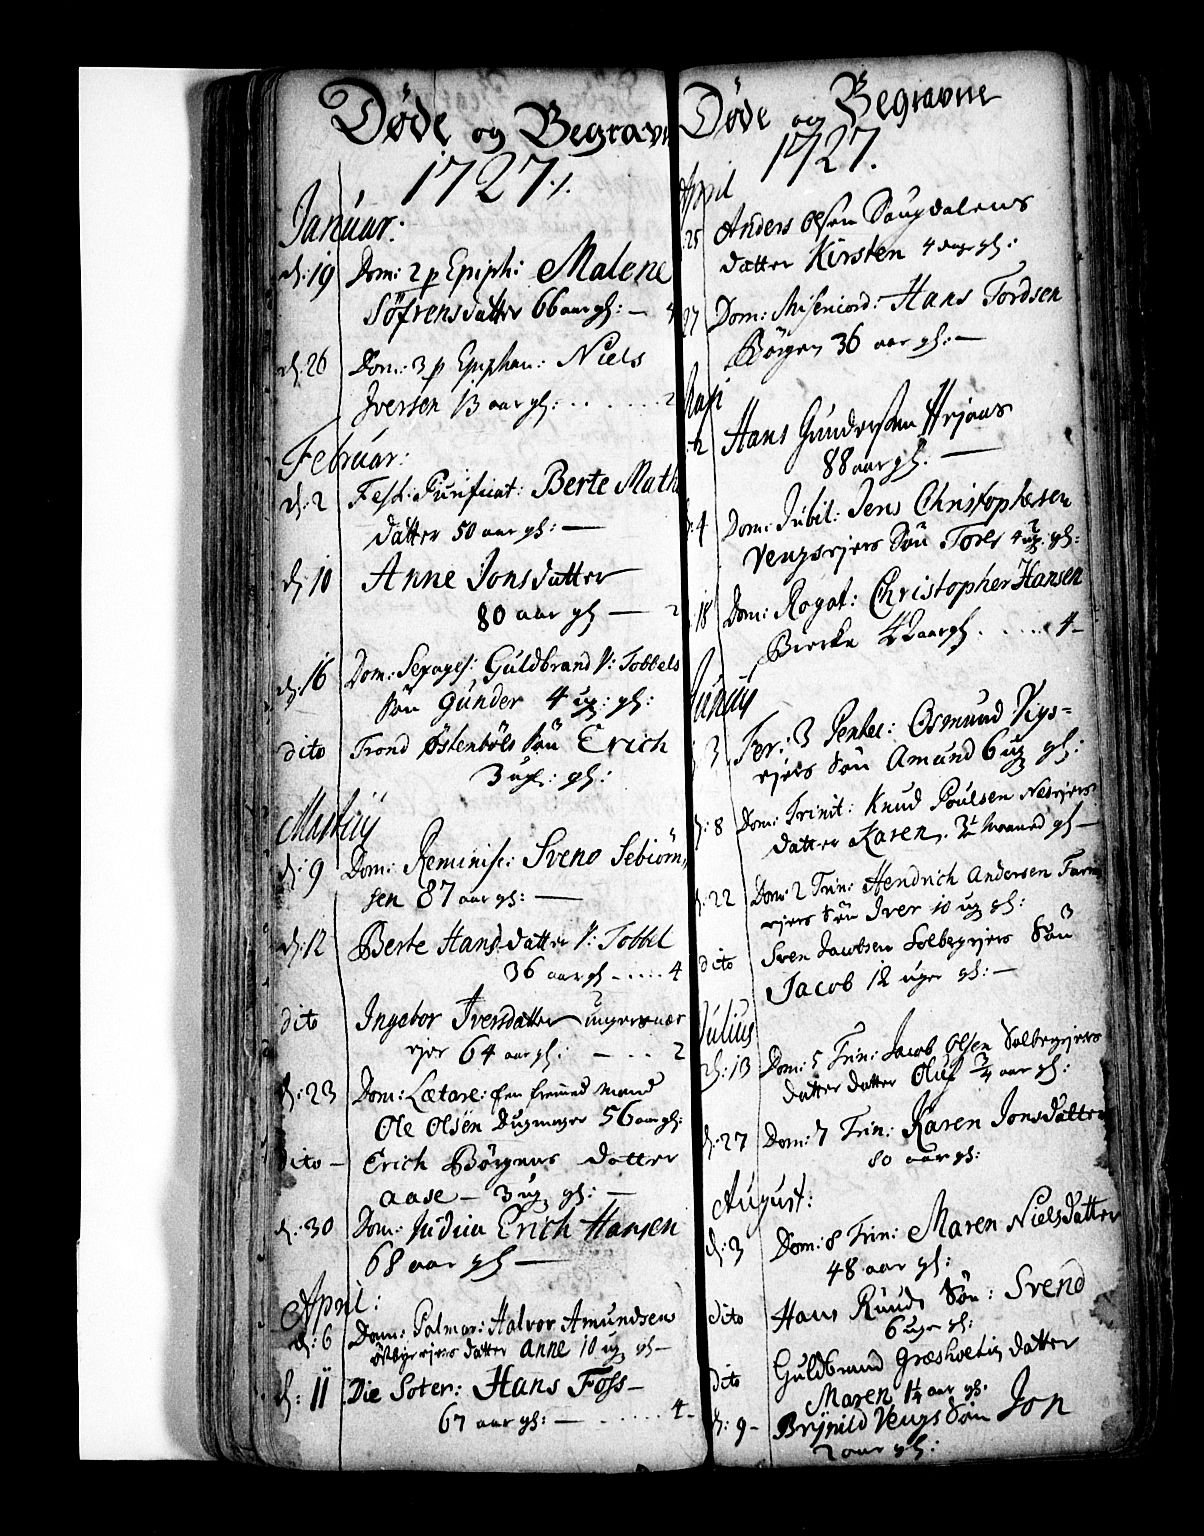 Døde og Begravne
1727 ./.
Januar:
d: 19 Dom: 2 p Epiph: Malene
Söfrensdatter 66 aar gl: — 4
d: 26 Dom: 3 p Epiphan: Niels
Iversen 13 aar gl: . . . . . 2
Februar:
d: 2 Fest: Purificat: Berte Math
datter 50 aar gl: —
d: 10 Anne Jonsdatter
80 aar gl — 2
d: 16 Dom: Sexages: Guldbrand V: Tobbels
Sön Gunder 4 ug: gl:
dito Trond Østenböls Sön Erich
3 ug: gl:
Martius
d: 9 Dom: Reminisc: Svend Sebiörn,
sen 87 aar gl: —
d: 12 Berte Hansdatter V: Tobbel
36 aar gl - . . . . 4
dito Ingebor Iversdatter
ejer 64 aar gl: — . . . 2
d: 23 Dom: Lætare: En fremmed Mand
Ole Olsen 56 aar gl:
dito — Erich Börgens datter
Aase — 3 ug gl: —
d: 30 Dom: Judica Erich Hansen
68 aar gl —
April:
d: 6 Dom: Palmar: Halvor Amundsens
datter Anne 10 ug gl —
d: 11 Die Soter: Hans Foss —
67 aar gl: — . . . . . 4 -
Døde og Begravne
1727.
April
25 Anders Olsen Saugdalens
datter Kirsten 4 dage gl:
27 Dom: Misericord: Hans Tordsen
Börgen 36 aar gl: —
Maji
2 Hans Gundersen
88 aar gl. —
d: 4 Dom: Jubil: Jens Christophersen
Vengsejers Sön Tores 4 ug. gl:
18 Dom: Rogat: Christopher Hansen
Biercke 42 aar gl . . . . . 4 -
Junius
d: 3 Fer: 3 Pentec: Osmund Vigs=
ejers Sön Amund 6 ug gl:
d: 8 Dom: Trinit: Knud Poulsen Nesejers
datter Karen, 3 1/2 Maaned gl —
d: 22 Dom: 2 Trin: Hendrich Andersen
ejers Sön Iver 10 ug gl:
dito Sven Jacobsen Solbergejers Sön
Jacob 12 uger gl: —
Julius
d: 13 Dom: 5 Trin: Jacob Olsen Solbergejers
datter datter Oluf 3/4 aar gl:
d: 27 Dom: 7 Trin: Karen Jonsdatter
80 aar gl:
August:
d: 3 Dom: 8 Trin: Maren Nielsdatter
48 aar gl:
dito Hans Ruuds Sön: Svend
6 uge gl:
dito Guldbrand Græsholtis datter
Maren 1 1/4 aar gl.
d: 9 - Brynild Vengs Sön Jon
2 aar gl: